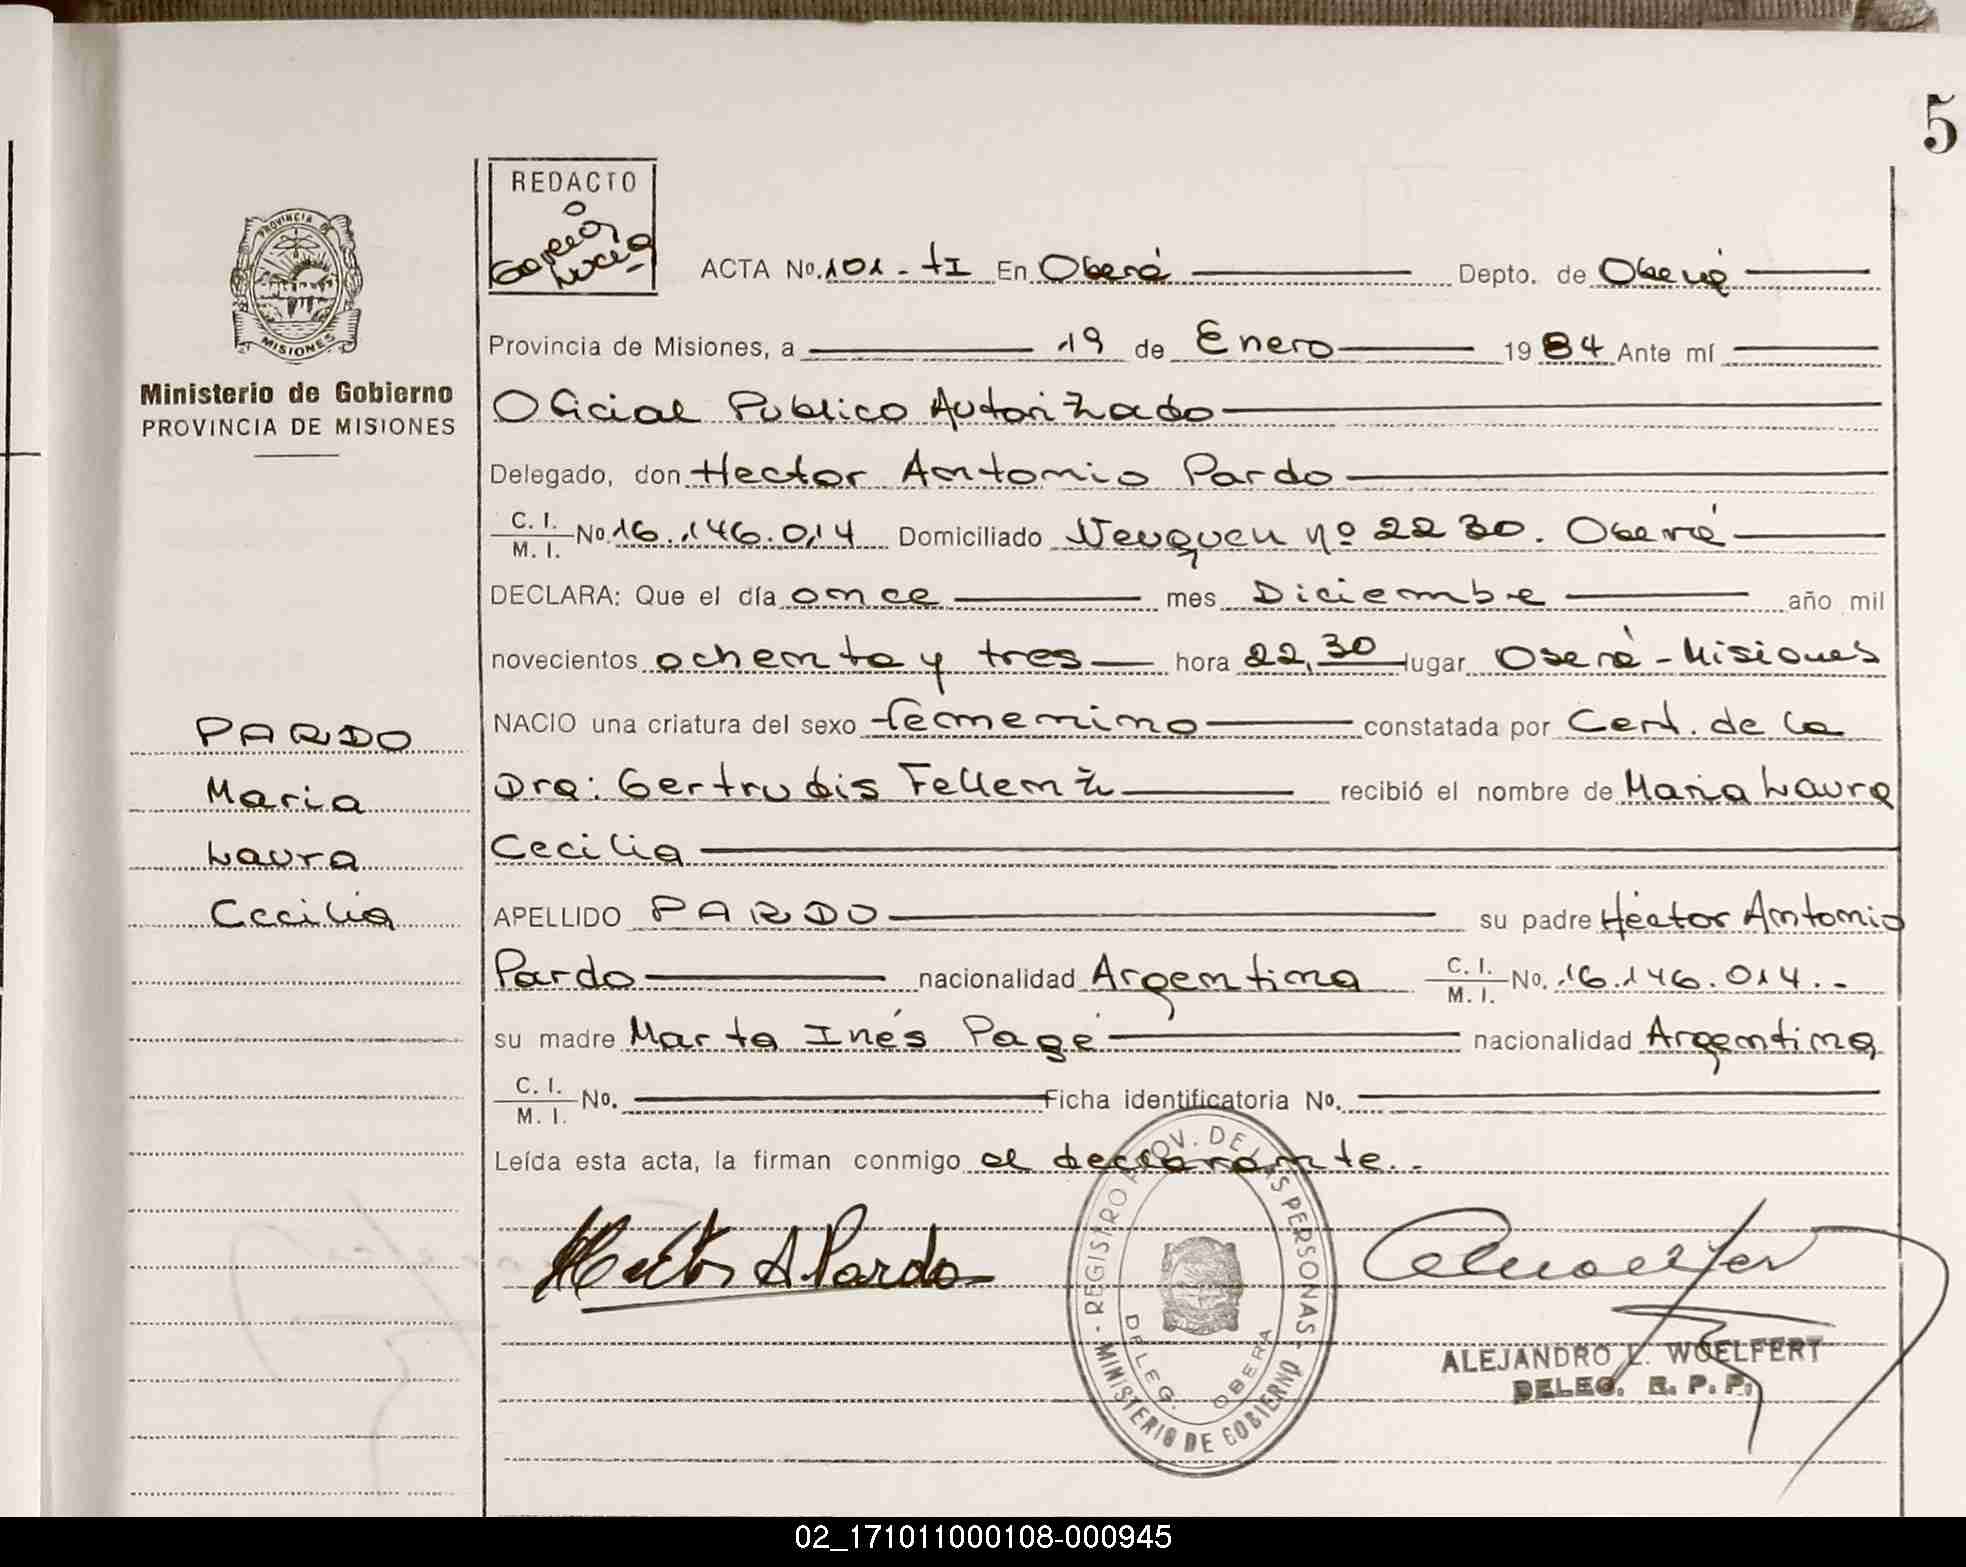 5
REDACTO
PROVINCIA DE
MISIONES
Ministerio de Gobierno
PROVINCIA DE MISIONES
ACTA No. 101-tI En Oberá Depto. de Oberá
Provincia de Misiones, a 19 de Enero 1984 Ante mí
Oficial Publico Autorizado
Delegado, don Hector Antonio Pardo
C. I. / M. I. No. 16.146.014 Domiciliado Neuquen nº 2230. Oberá
DECLARA: Que el día once mes Diciembre año mil
novecientos ochenta y tres hora 22,30 lugar Oberá - Misiones
NACIO una criatura del sexo femenino constatada por Cert. de la
Dra: Gertrudis Fellenz recibió el nombre de Maria Laura
Cecilia
APELLIDO PARDO su padre Héctor Antonio
Pardo nacionalidad Argentina C. I. / M. I. No. 16.146.014.-
su madre Marta Inés Pagé nacionalidad Argentina
C. I. / M. I. No. Ficha identificatoria No.
Leída esta acta, la firman conmigo el declarante.-
PARDO
Maria
Laura
Cecilia
Hector A Pardo
REGISTRO PROV. DE LAS PERSONAS
MINISTERIO DE GOBIERNO
DELEG. OBERA
ALEJANDRO E. WOELFERT
DELEG. R. P. P.
02_171011000108-000945